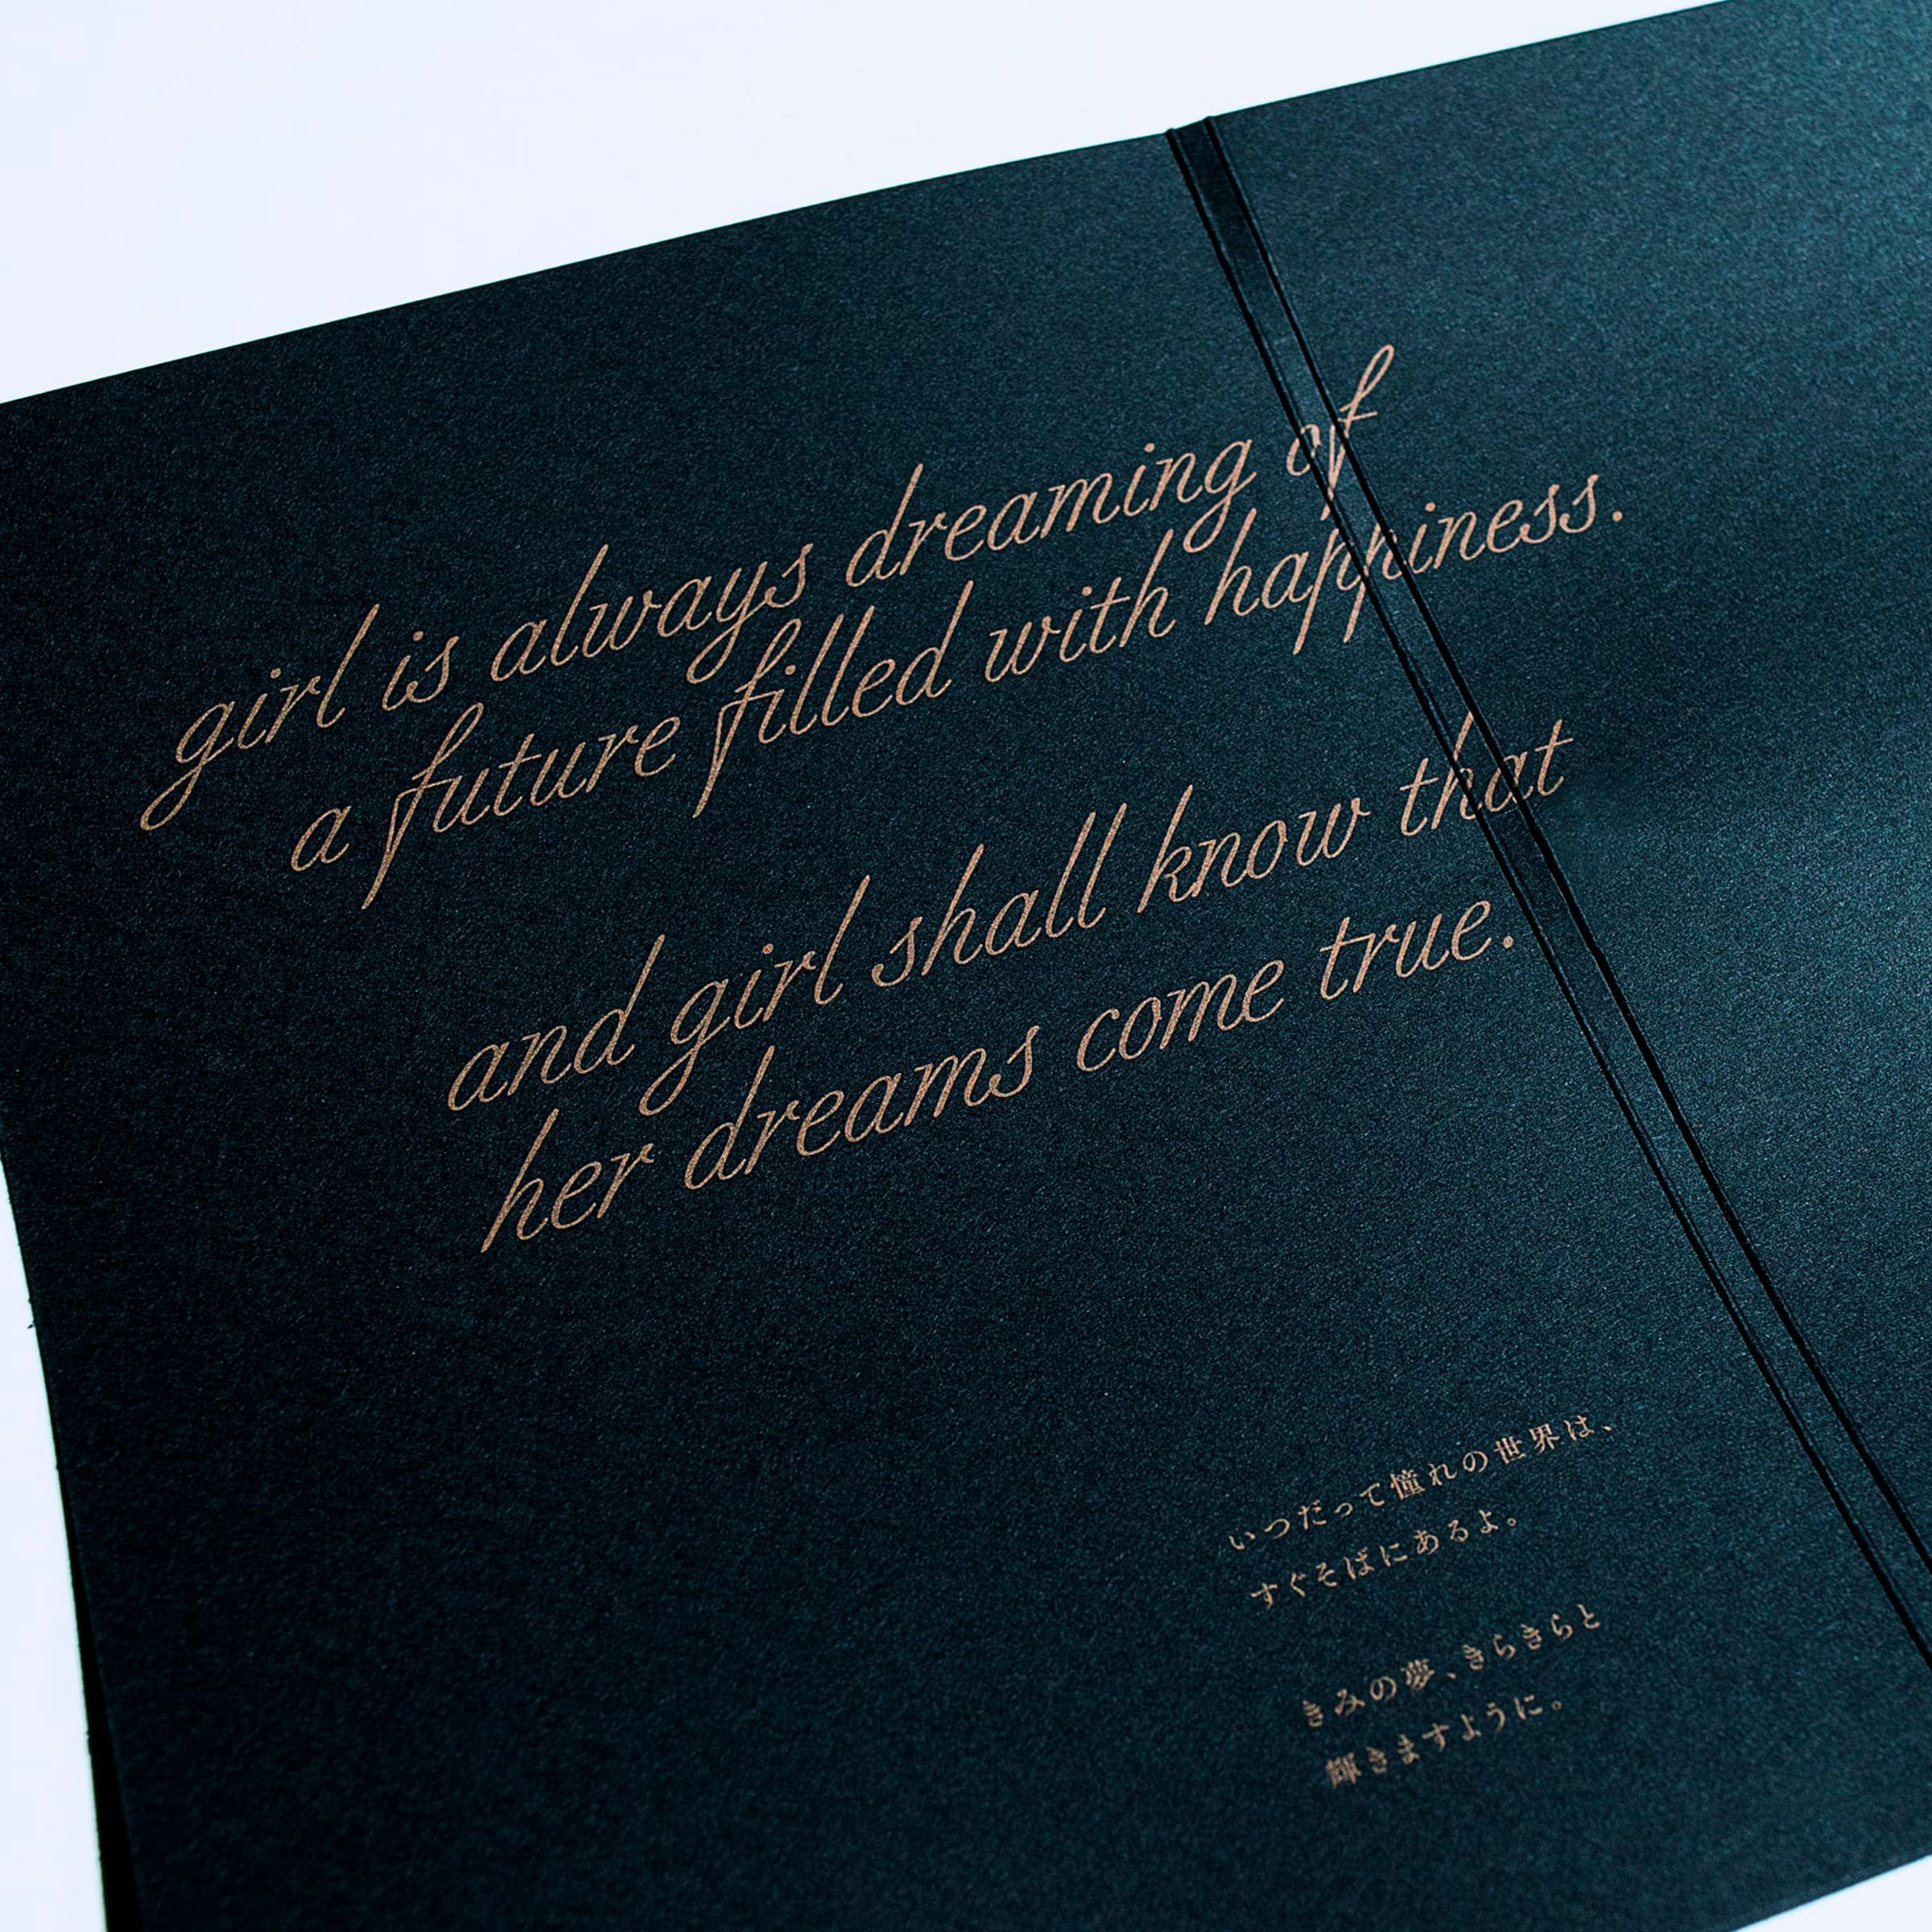 girl is always dreaming of
a future filled with happiness.
and girl shall know that
her dreams come true.
いつだって憧れの世界は、
すぐそばにあるよ。
きみの夢、きらきらと
輝きますように。